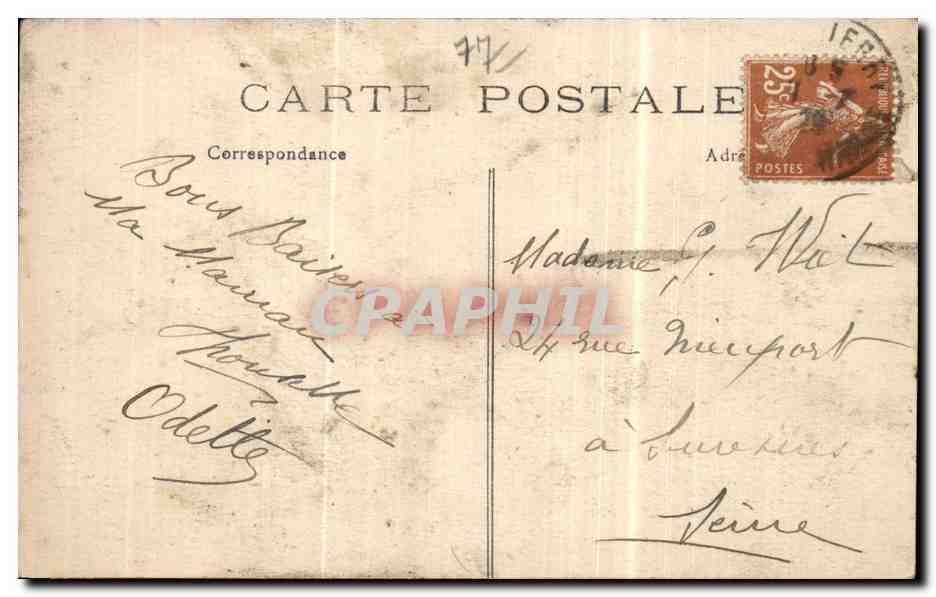 77
CARTE POSTALE
Correspondance
Adre
25c
POSTES
Bons Baisers a
Ma Maman
Odette
Madame G. Wiet
24 rue Nieuport
à Suresnes
Seine
CPAPHIL